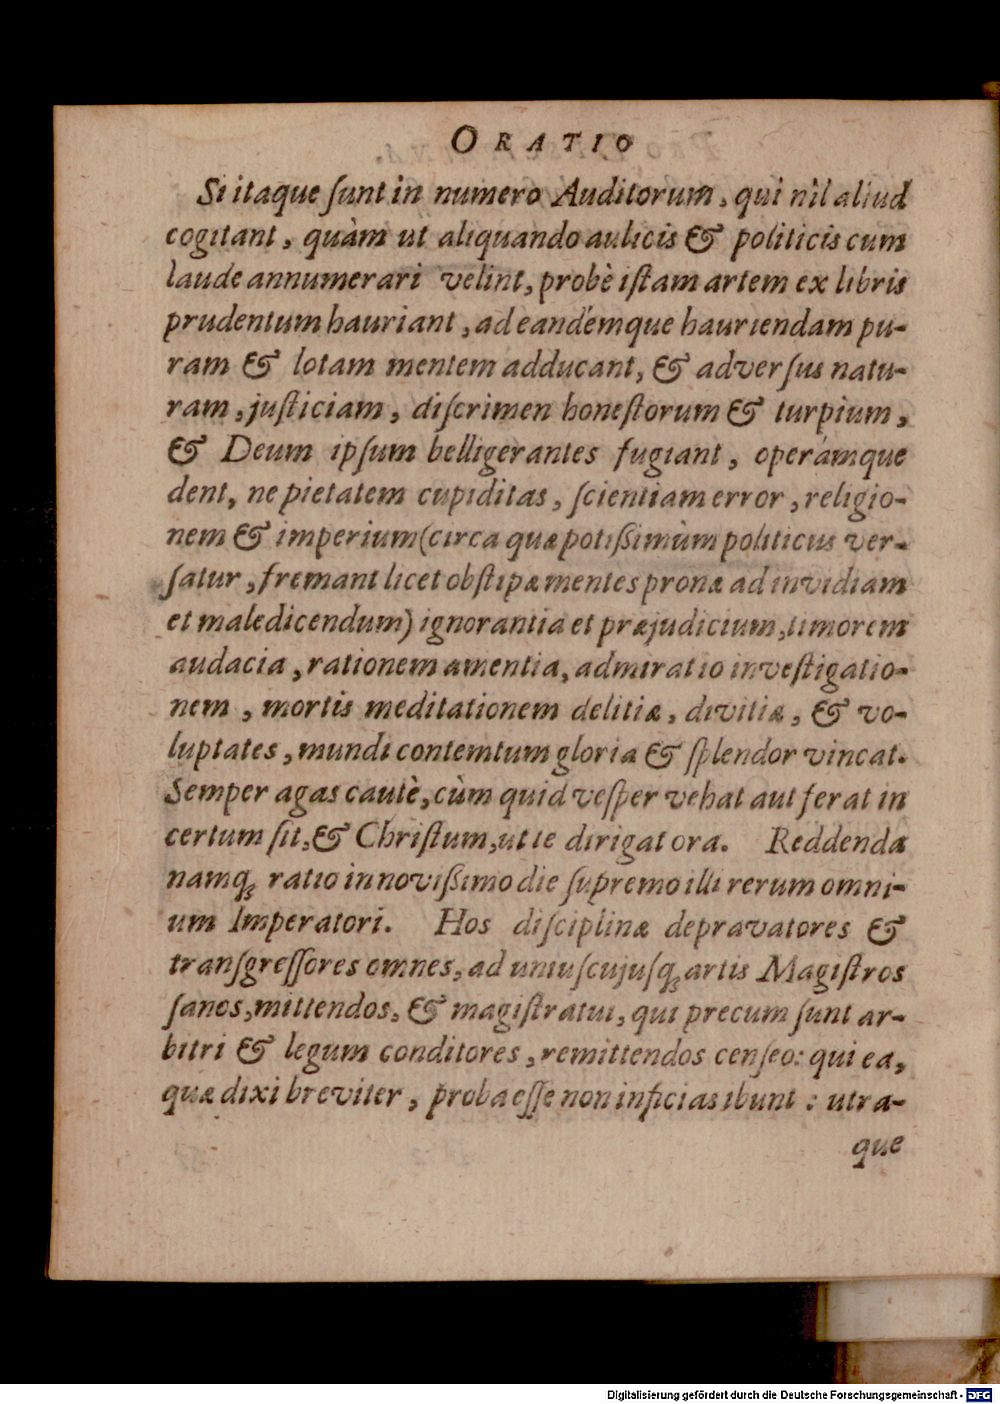 ORATIO
Si itaque ſunt in numero Auditorum, qui nil aliud
cogitant, quàm ut aliquando aulicis & politicis cum
laude annumerari velint, probè iſtam artem ex libris
prudentum hauriant, ad eandémque hauriendam pu-
ram & lotam mentem adducant, & adverſus natu-
ram, juſticiam, diſcrimen honeſtorum & turpium,
& Deum ipſum belligerantes fugiant, operámque
dent, ne pietatem cupiditas, ſcientiam error, religio-
nem & imperium (circa quæ potißimùm politicus ver-
ſatur, fremant licet obſtipæ mentes pronæ ad invidiam
et maledicendum) ignorantia et præjudicium, timorem
audacia, rationem amentia, admiratio inveſtigatio-
nem, mortis meditationem delitiæ, divitiæ, & vo-
luptates, mundi contemtum gloria & ſplendor vincat.
Semper agas cautè, cùm quid veſper vehat aut ferat in
certum ſit, & Chriſtum, ut te dirigat ora. Reddenda
namq; ratio in novißimo die ſupremo illi rerum omni-
um Imperatori. Hos diſciplinæ depravatores &
tranſgreſſores omnes, ad uniuſcujuſq; artis Magiſtros
ſanos, mittendos, & magiſtratui, qui precum ſunt ar-
bitri & legum conditores, remittendos cenſeo: qui ea,
quæ dixi breviter, proba eſſe non inficias ibunt: utra-
que
Digitalisierung gefördert durch die Deutsche Forschungsgemeinschaft - DFG